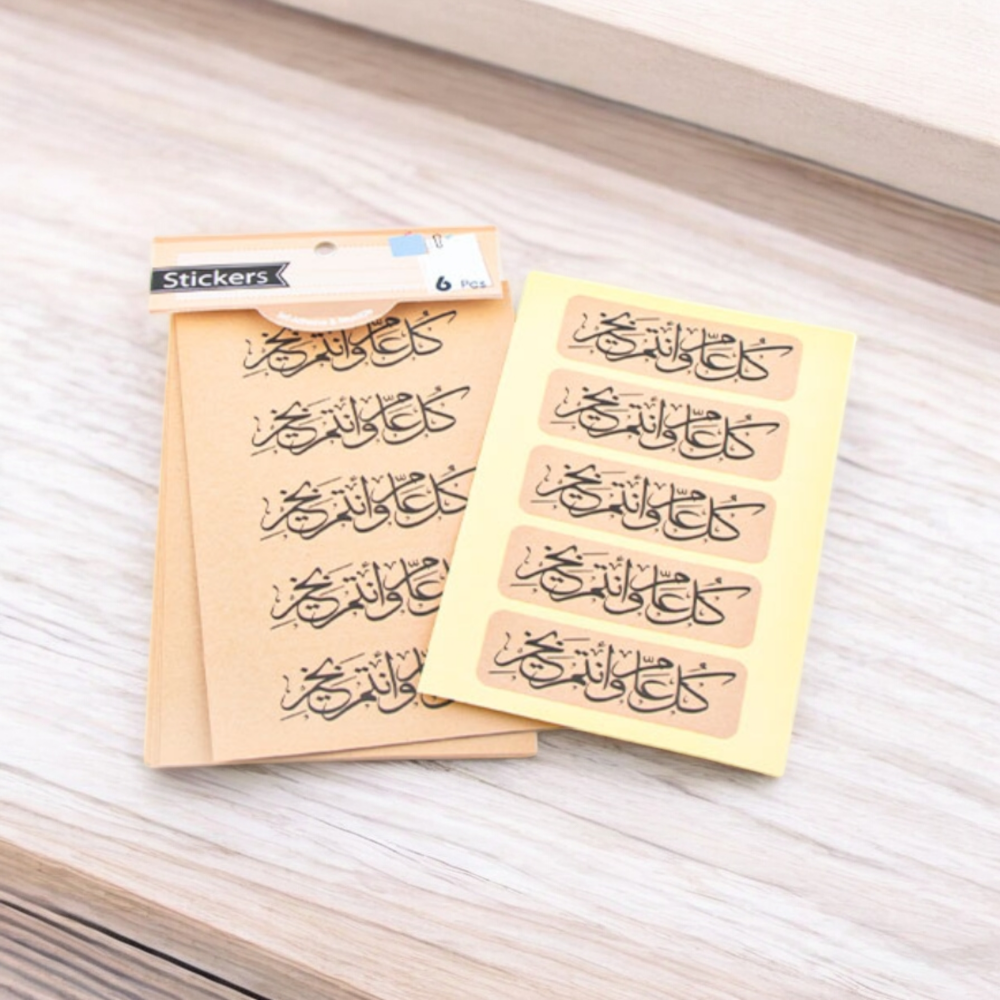 Stickers
6 Pcs
كل عام وأنتم بخير
كل عام وأنتم بخير
كل عام وأنتم بخير
كل عام وأنتم بخير
كل عام وأنتم بخير
كل عام وأنتم بخير
كل عام وأنتم بخير
كل عام وأنتم بخير
عام وأنتم بخير
وأنتم بخير